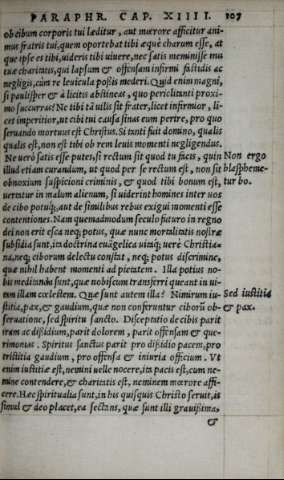 PARAPHR. CAP. XIIII. 107
ob cibum corporis tui læditur, aut mœrore afficitur ani-
mus fratris tui, quem oportebat tibi æquè charum esse, at
que ipse es tibi, uideris tibi uiuere, nec satis meminisse mu
tuæ charitatis, qui lapsum & offensam infirmi fastidis ac
negligis, cùm re leuicula poßis mederi. Quid enim magni,
si paulisper & à licitis abstineas, quo periclitanti proxi-
mo succurras? Ne tibi tã uilis sit frater, licet infirmior, li-
cet imperitior, ut cibi tui causa sinas eum perire, pro quo
seruando mortuus est Christus. Si tanti fuit domino, qualis
qualis est, non est tibi ob rem leuis momenti negligendus.
Ne uerò satis esse putes, si rectum sit quod tu facis, quin Non ergo
illud etiam curandum, ut quod per se rectum est, non sit blaspheme-
obnoxium suspicioni criminis, & quod tibi bonum est, tur bo.
uertatur in malum alienum, si uiderint homines inter uos
de cibo potuq́;, aut de similibus rebus exigui momenti esse
contentiones. Nam quemadmodum seculo futuro in regno
dei non erit esca neq; potus, quæ nunc mortalitatis nostræ
subsidia sunt, ita doctrina euãgelica uitaq́; uerè Christia-
na, neq; ciborum delectu constat, neq; potus discrimine,
quæ nihil habent momenti ad pietatem. Illa potius no-
bis meditanda sunt, quæ nobiscum transferri queant in ui-
tam illam cœlestem. Quæ sunt autem illa? Nimirum iu- Sed iustitia
stitia, pax, & gaudium, quæ non conferuntur ciborũ ob- & pax.
seruatione, sed spiritu sancto. Disceptatio de cibis parit
iram ac dißidium, parit dolorem, parit offensam & que-
rimonias. Spiritus sanctus parit pro dißidio pacem, pro
tristitia gaudium, pro offensa & iniuria officium. Vt
enim iustitiæ est, nemini uelle nocere, ita pacis est, cum ne-
mine contendere, & charitatis est, neminem mœrore affi-
cere. Hæc spiritualia sunt, in his quisquis Christo seruit, is
simul & deo placet, ea sectans, quæ sunt illi grauißima,
&